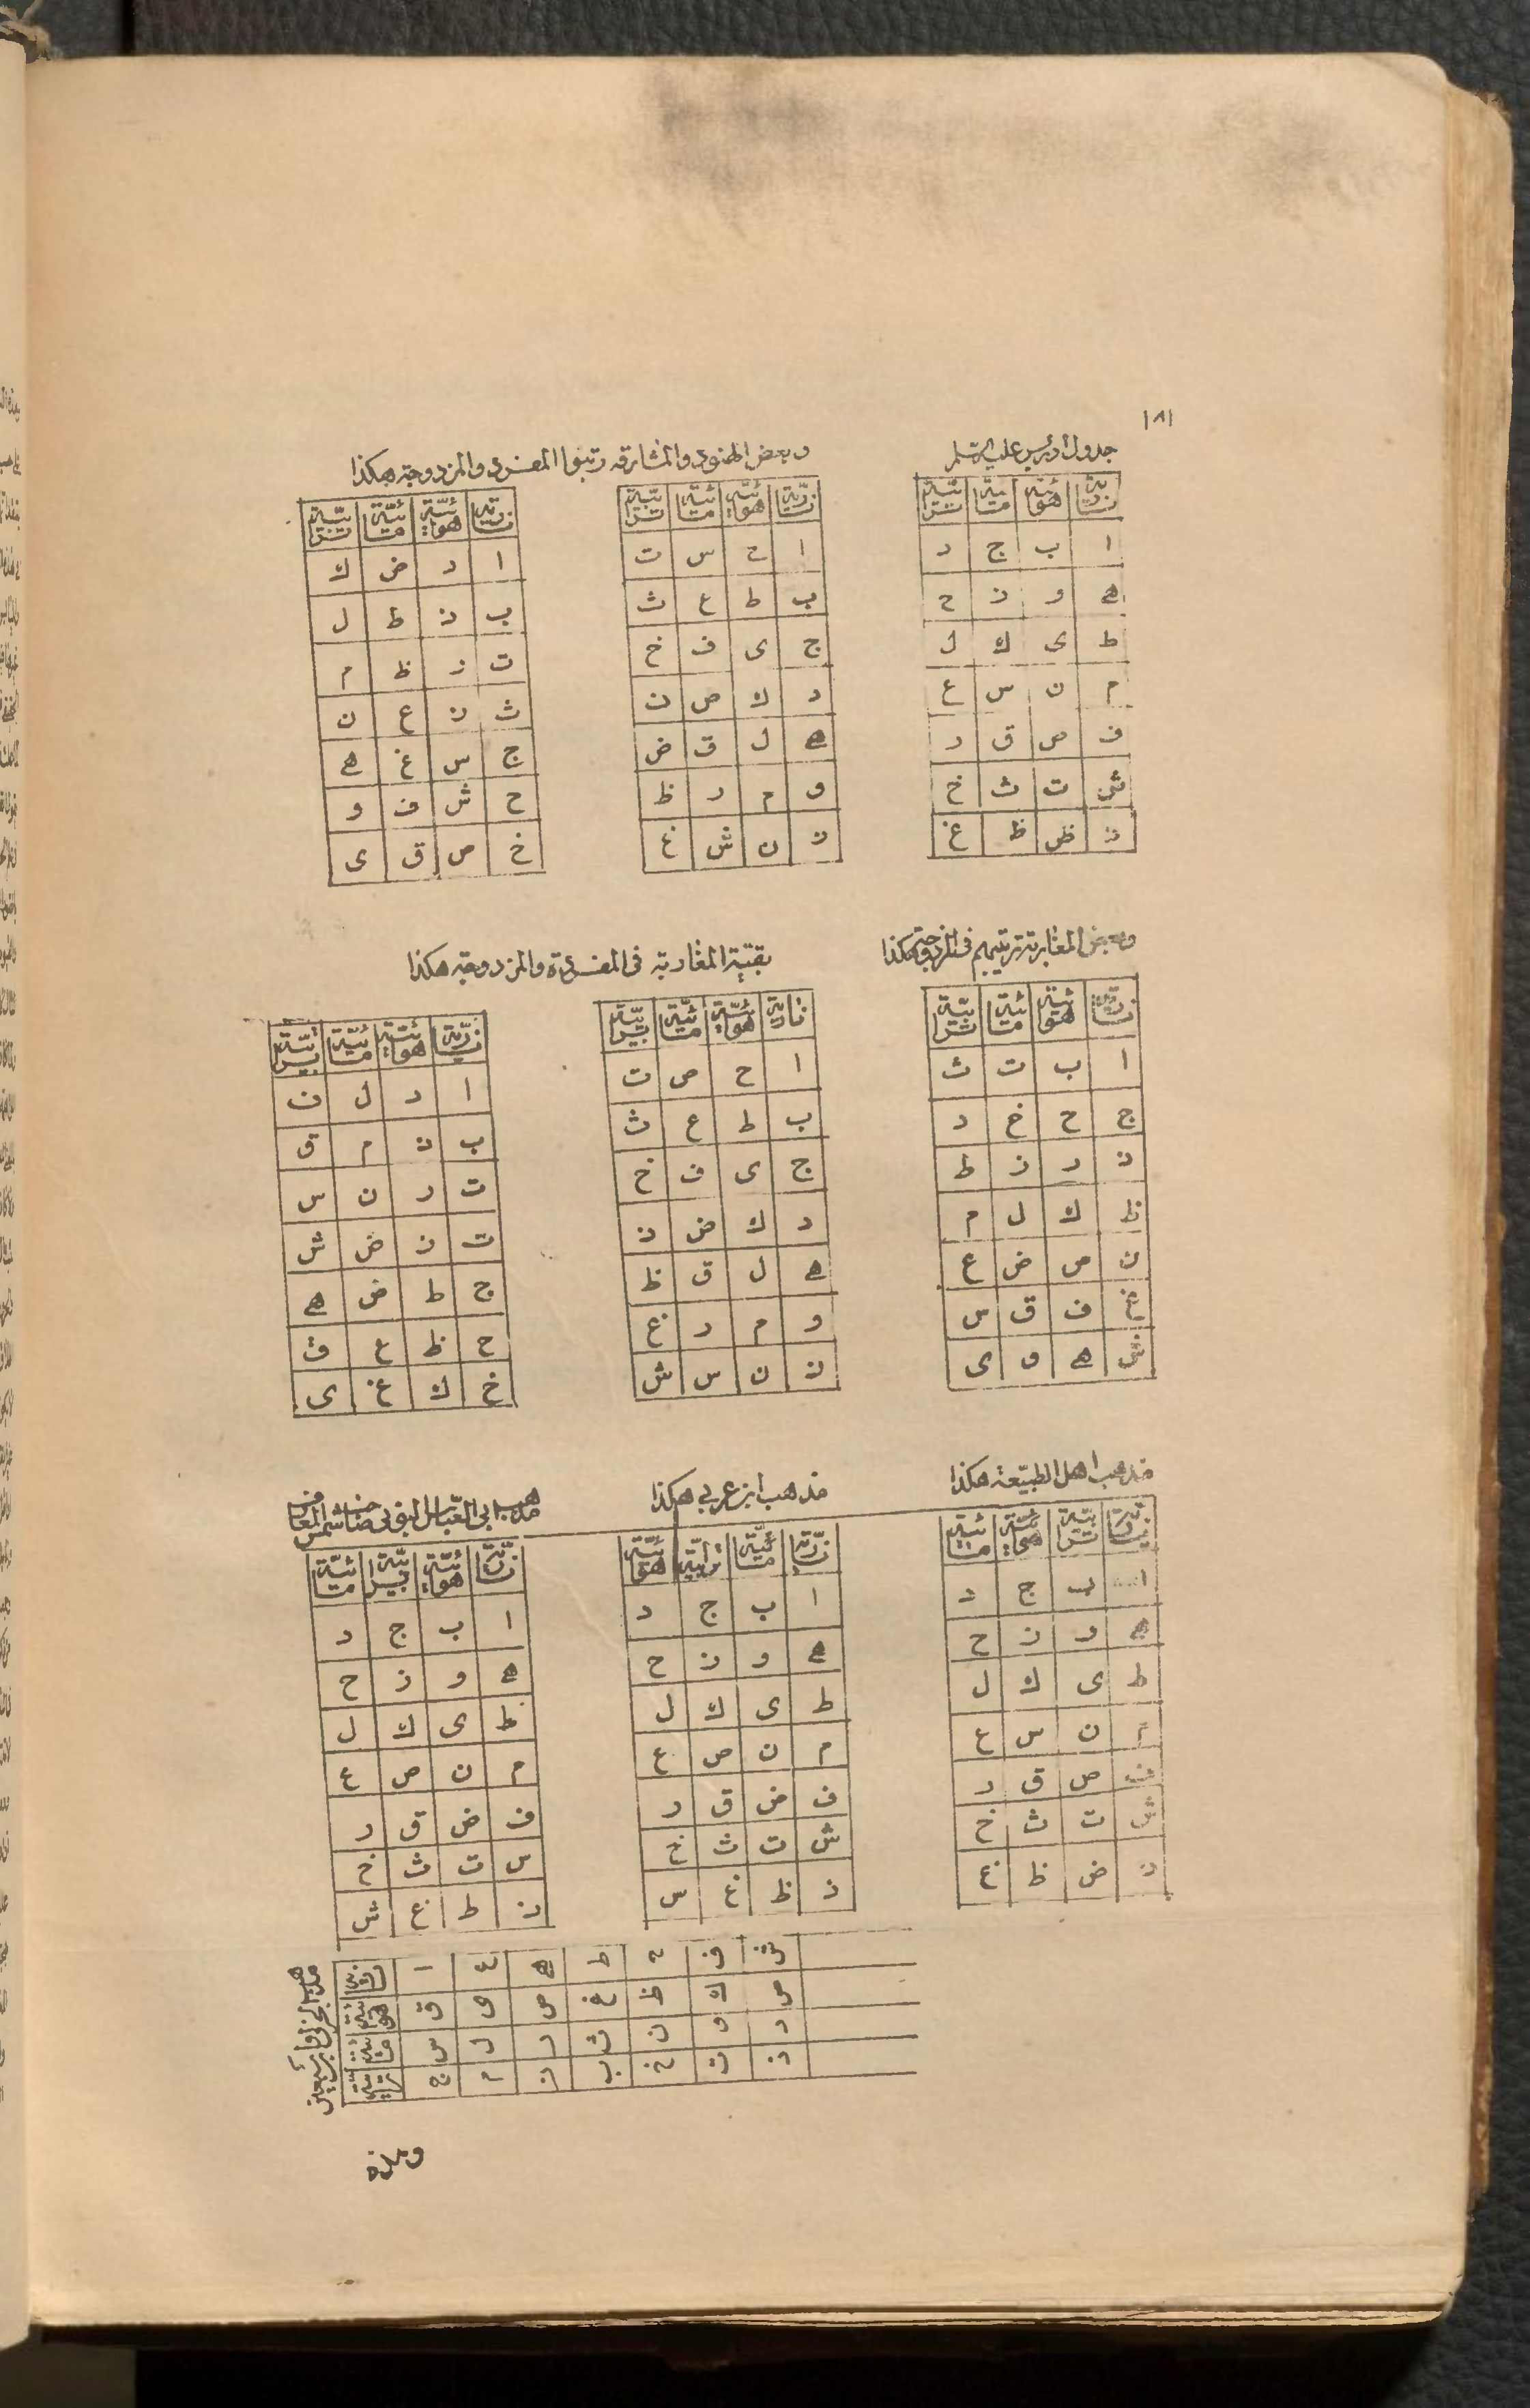 ١٨١
جدول ادريس عليه السلم
نارية هوئية مائية ترابية
ا ب ج د
ه و ز ح
ط ى ك ل
م ن س ع
ف ص ق ر
ش ت ث خ
ذ ض ظ غ
وبعض الهنود والمشارقه رتبوا المفردى والمزدوجة هكذا
نارية هوائية مائية ترابية
ا ح س ت
ب ط ع ث
ج ى ف خ
د ك ص ذ
ه ل ق ض
و م ر ظ
ز ن ش غ
نارية هوائية مائية ترابية
ا د ض ك
ب ذ ط ل
ت ر ظ م
ث ز ع ن
ج س غ ه
ح ش ف و
خ ص ق ى
وبعض المغاربة ترتيبهم فى المزدوجة هكذا
نارية هوئية مائية ترابية
ا ب ت ث
ج ح خ د
ذ ر ز ط
ظ ك ل م
ن ص ض ع
غ ف ق س
ش ه و ى
بقية المغاربة فى المفردة والمزدوجة هكذا
نارية هوائية مائية ترابية
ا ح ص ت
ب ط ع ث
ج ى ف خ
د ك ض ذ
ه ل ق ظ
و م ر غ
ز ن س ش
نارية هوائية مائية ترابية
ا د ل ف
ب ذ م ق
ت ر ن س
ت ز ض ش
ج ط ض ه
ح ظ ع ف
خ ك غ ى
مذهب اهل الطبيعة هكذا
نارية ترابية هوائية مائية
ا ب ج د
ه و ز ح
ط ى ك ل
م ن س ع
ف ص ق ر
ش ت ث خ
ذ ض ظ غ
مذهب ابن عربى هكذا
نارية مائية ترابية هوئية
ا ب ج د
ه و ز ح
ط ى ك ل
م ن ص ع
ف ض ق ر
ش ت ث خ
ذ ظ غ س
مذهب ابى العباس البونى شمس المعارف
نارية هوائية ترابية مائية
ا ب ج د
ه و ز ح
ط ى ك ل
م ن ص ع
ف ض ق ر
س ت ث خ
ذ ظ غ ش
مذهب
ا ع ه ط ح ف ش
ق ى ص غ ظ ك ض
س ل ر ث ن و د
ج م ز ب خ ت ذ
وهذه